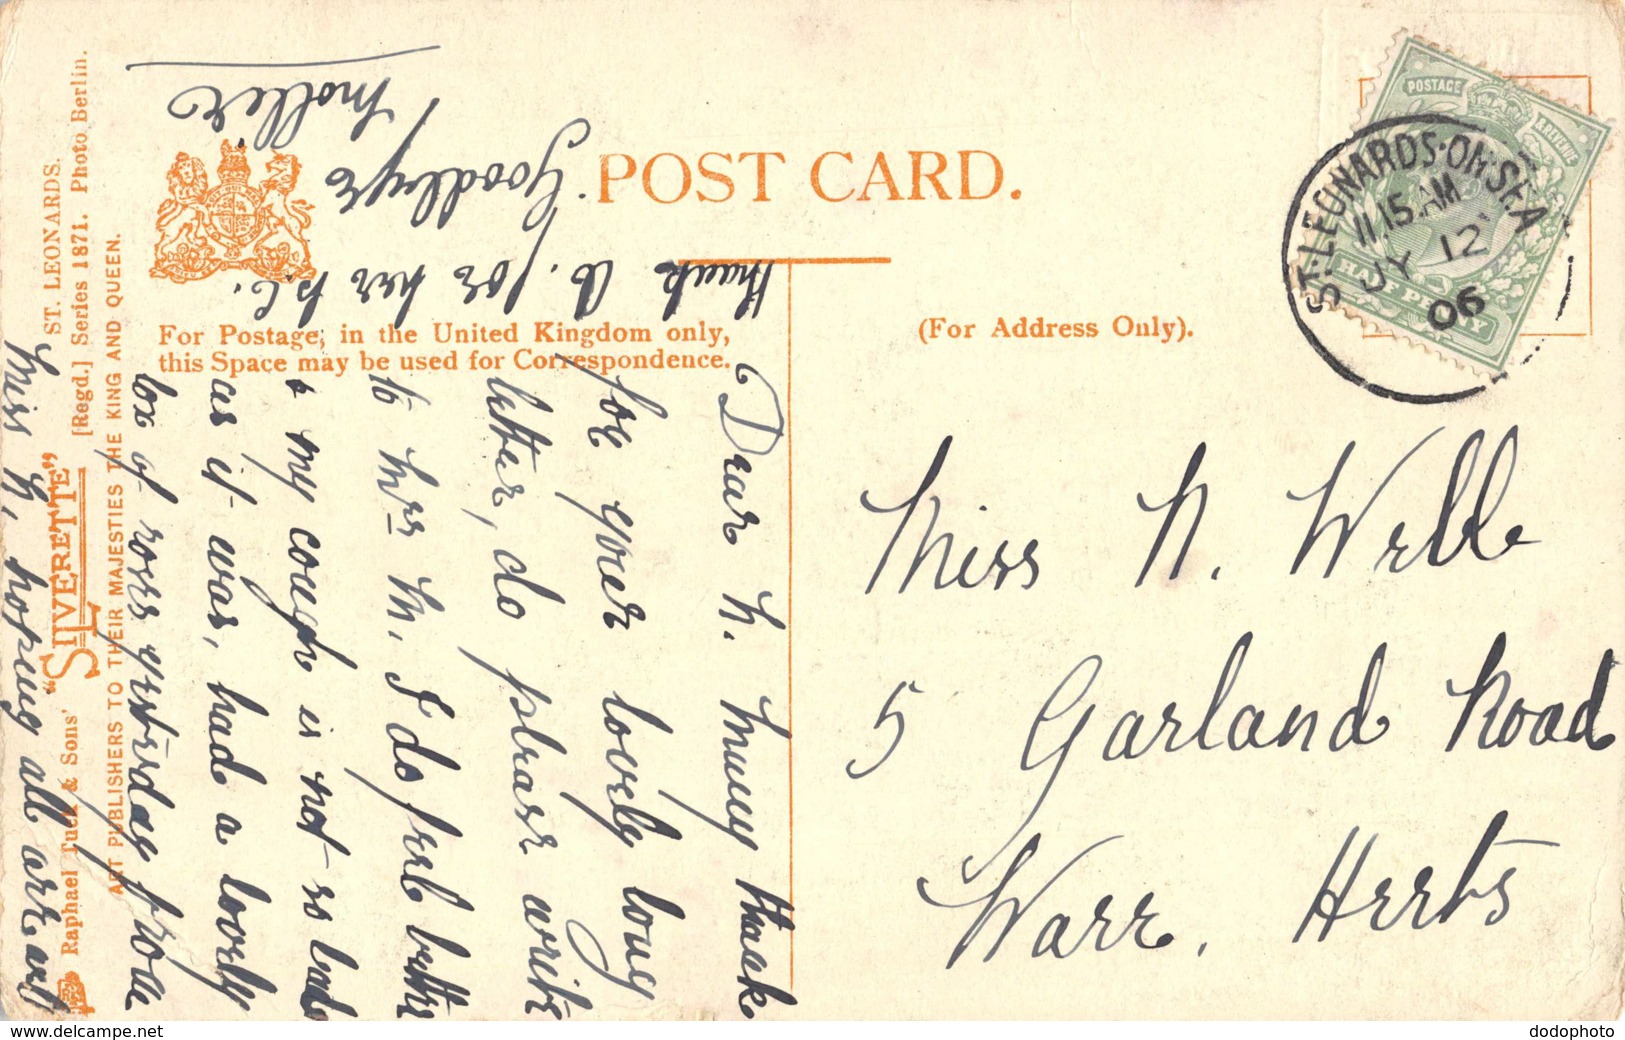 POST CARD.
For Postage, in the United Kingdom only,
this Space may be used for Correspondence.
(For Address Only).
POSTAGE & REVENUE
HALF PENNY
ST. LEONARDS-ON-SEA
11.15 AM
JY 12
06
Miss N. Webb
5 Garland Road
Ware, Herts
Dear N. Many thanks
for your lovely long
letter, do please write
to Mrs M. I do feel better
& my cough is not so bad
as it was, had a lovely
box of roses yesterday from
Miss N, hoping all are well
thank for her p.c.
Goodbye
Mollie
ST. LEONARDS.
Raphael Tuck & Sons' "SILVERETTE" [Regd.] Series 1871. Photo Berlin.
ART PUBLISHERS TO THEIR MAJESTIES THE KING AND QUEEN.
dodophoto